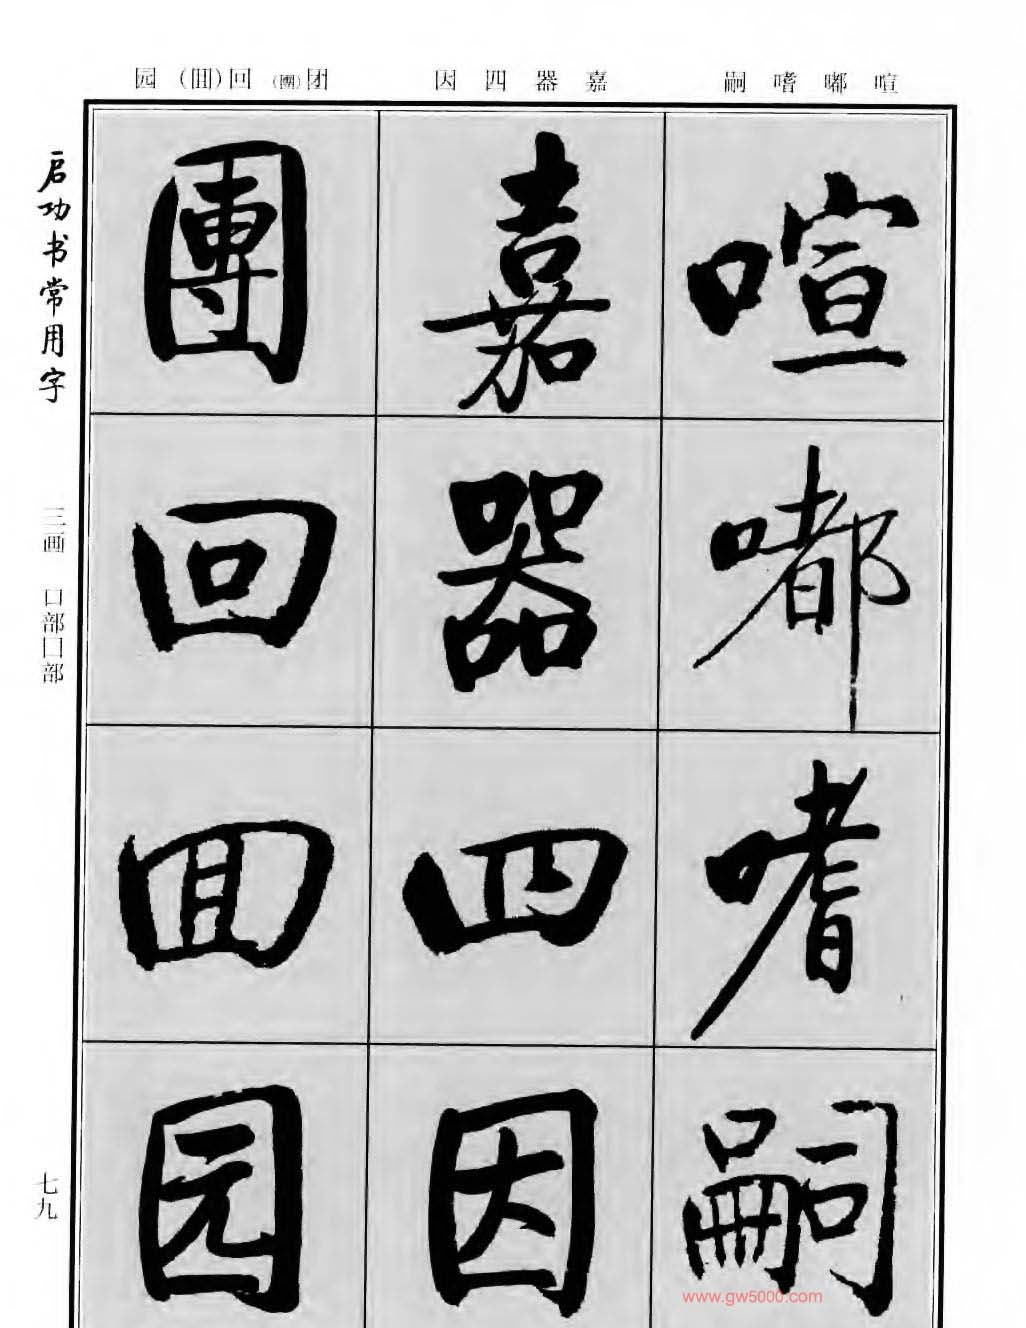 喧嘟嗜嗣
嘉器四因
团(團)回(囬)园
喧
嘟
嗜
嗣
嘉
器
四
因
團
回
囬
园
启功书常用字
三画 口部囗部
七九
www.gw5000.com